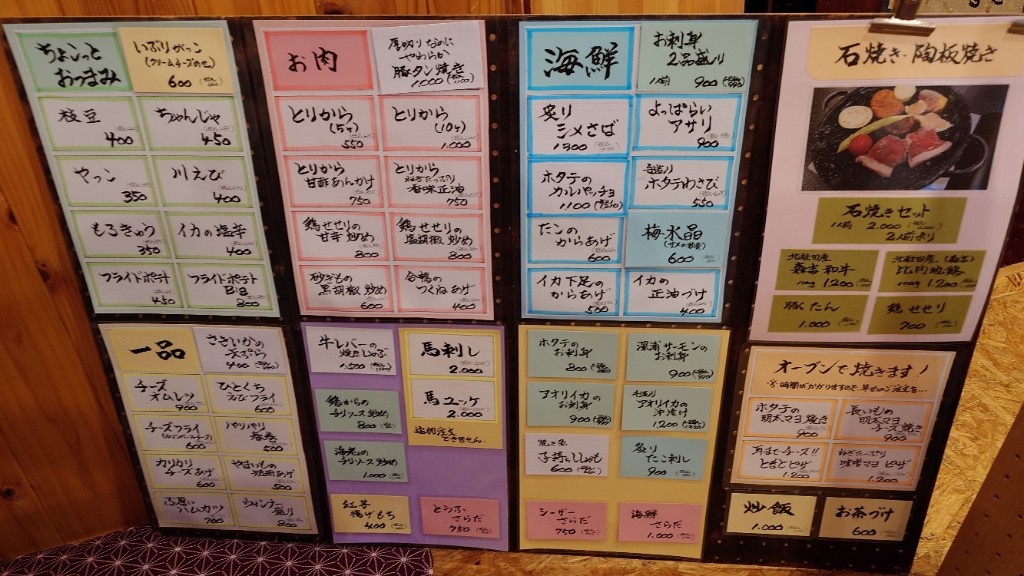 ちょこっと
おつまみ
いぶりがっこ
(クリームチーズのせ)
600
枝豆
400
ちゃんじゃ
450
やっこ
350
川えび
400
もろきゅう
350
イカの塩辛
400
フライドポテト
450
フライドポテト
Big
800
お肉
厚切りなのに
やわらか
豚タン焼き
1,000
とりから
(5ケ)
550
とりから
(10ケ)
1,000
とりから
甘酢あんかけ
750
とりから
香味正油
750
鶏せせりの
甘辛炒め
800
鶏せせりの
黒胡椒炒め
800
砂ぎもの
黒胡椒炒め
600
つくねあげ
400
海鮮
お刺身
2品盛り
1人前
900
炙り
シメさば
1300
よっぱらい
アサリ
900
ホタテの
カルパッチョ
1100
ホタテわさび
550
たこの
からあげ
600
梅水晶
(サメの軟骨)
600
イカ下足の
からあげ
500
イカの
正油づけ
400
石焼き・陶板焼き
石焼きセット
1人前 2,000
2人前より
北秋田産
森吉和牛
100g 1,200
北秋田産
比内地鶏
100g 1,200
豚たん
1,000
鶏せせり
700
一品
さきいかの
天ぷら
400
チーズ
オムレツ
900
ひとくち
えびフライ
600
チーズフライ
600
パリパリ
春巻
500
カリカリ
チーズあげ
600
やまいもの
500
ハムカツ
700
ウィンナー
盛り
800
牛レバーの
1,500
馬刺し
2,000
馬ユッケ
2,000
追加注文
できません。
鶏からの
チリソース炒め
800
海老の
チリソース炒め
1,000
紅芋
揚げもち
400
とうふ
さらだ
750
ホタテの
お刺身
800
深浦サーモンの
お刺身
900
アオリイカの
お刺身
900
アオリイカの
沖漬け
1,200
子持ちししゃも
600
炙り
たこ刺し
900
シーザー
さらだ
750
海鮮
さらだ
1,000
オーブンで焼きます!
※時間がかかりますので、早めのご注文を…
ホタテの
明太マヨ焼き
900
長いもの
明太マヨ
チーズ焼き
900
耳までチーズ!!
ピザ
1,200
ねぎたっぷり
味噌マヨピザ
1,200
炒飯
1,000
お茶づけ
600